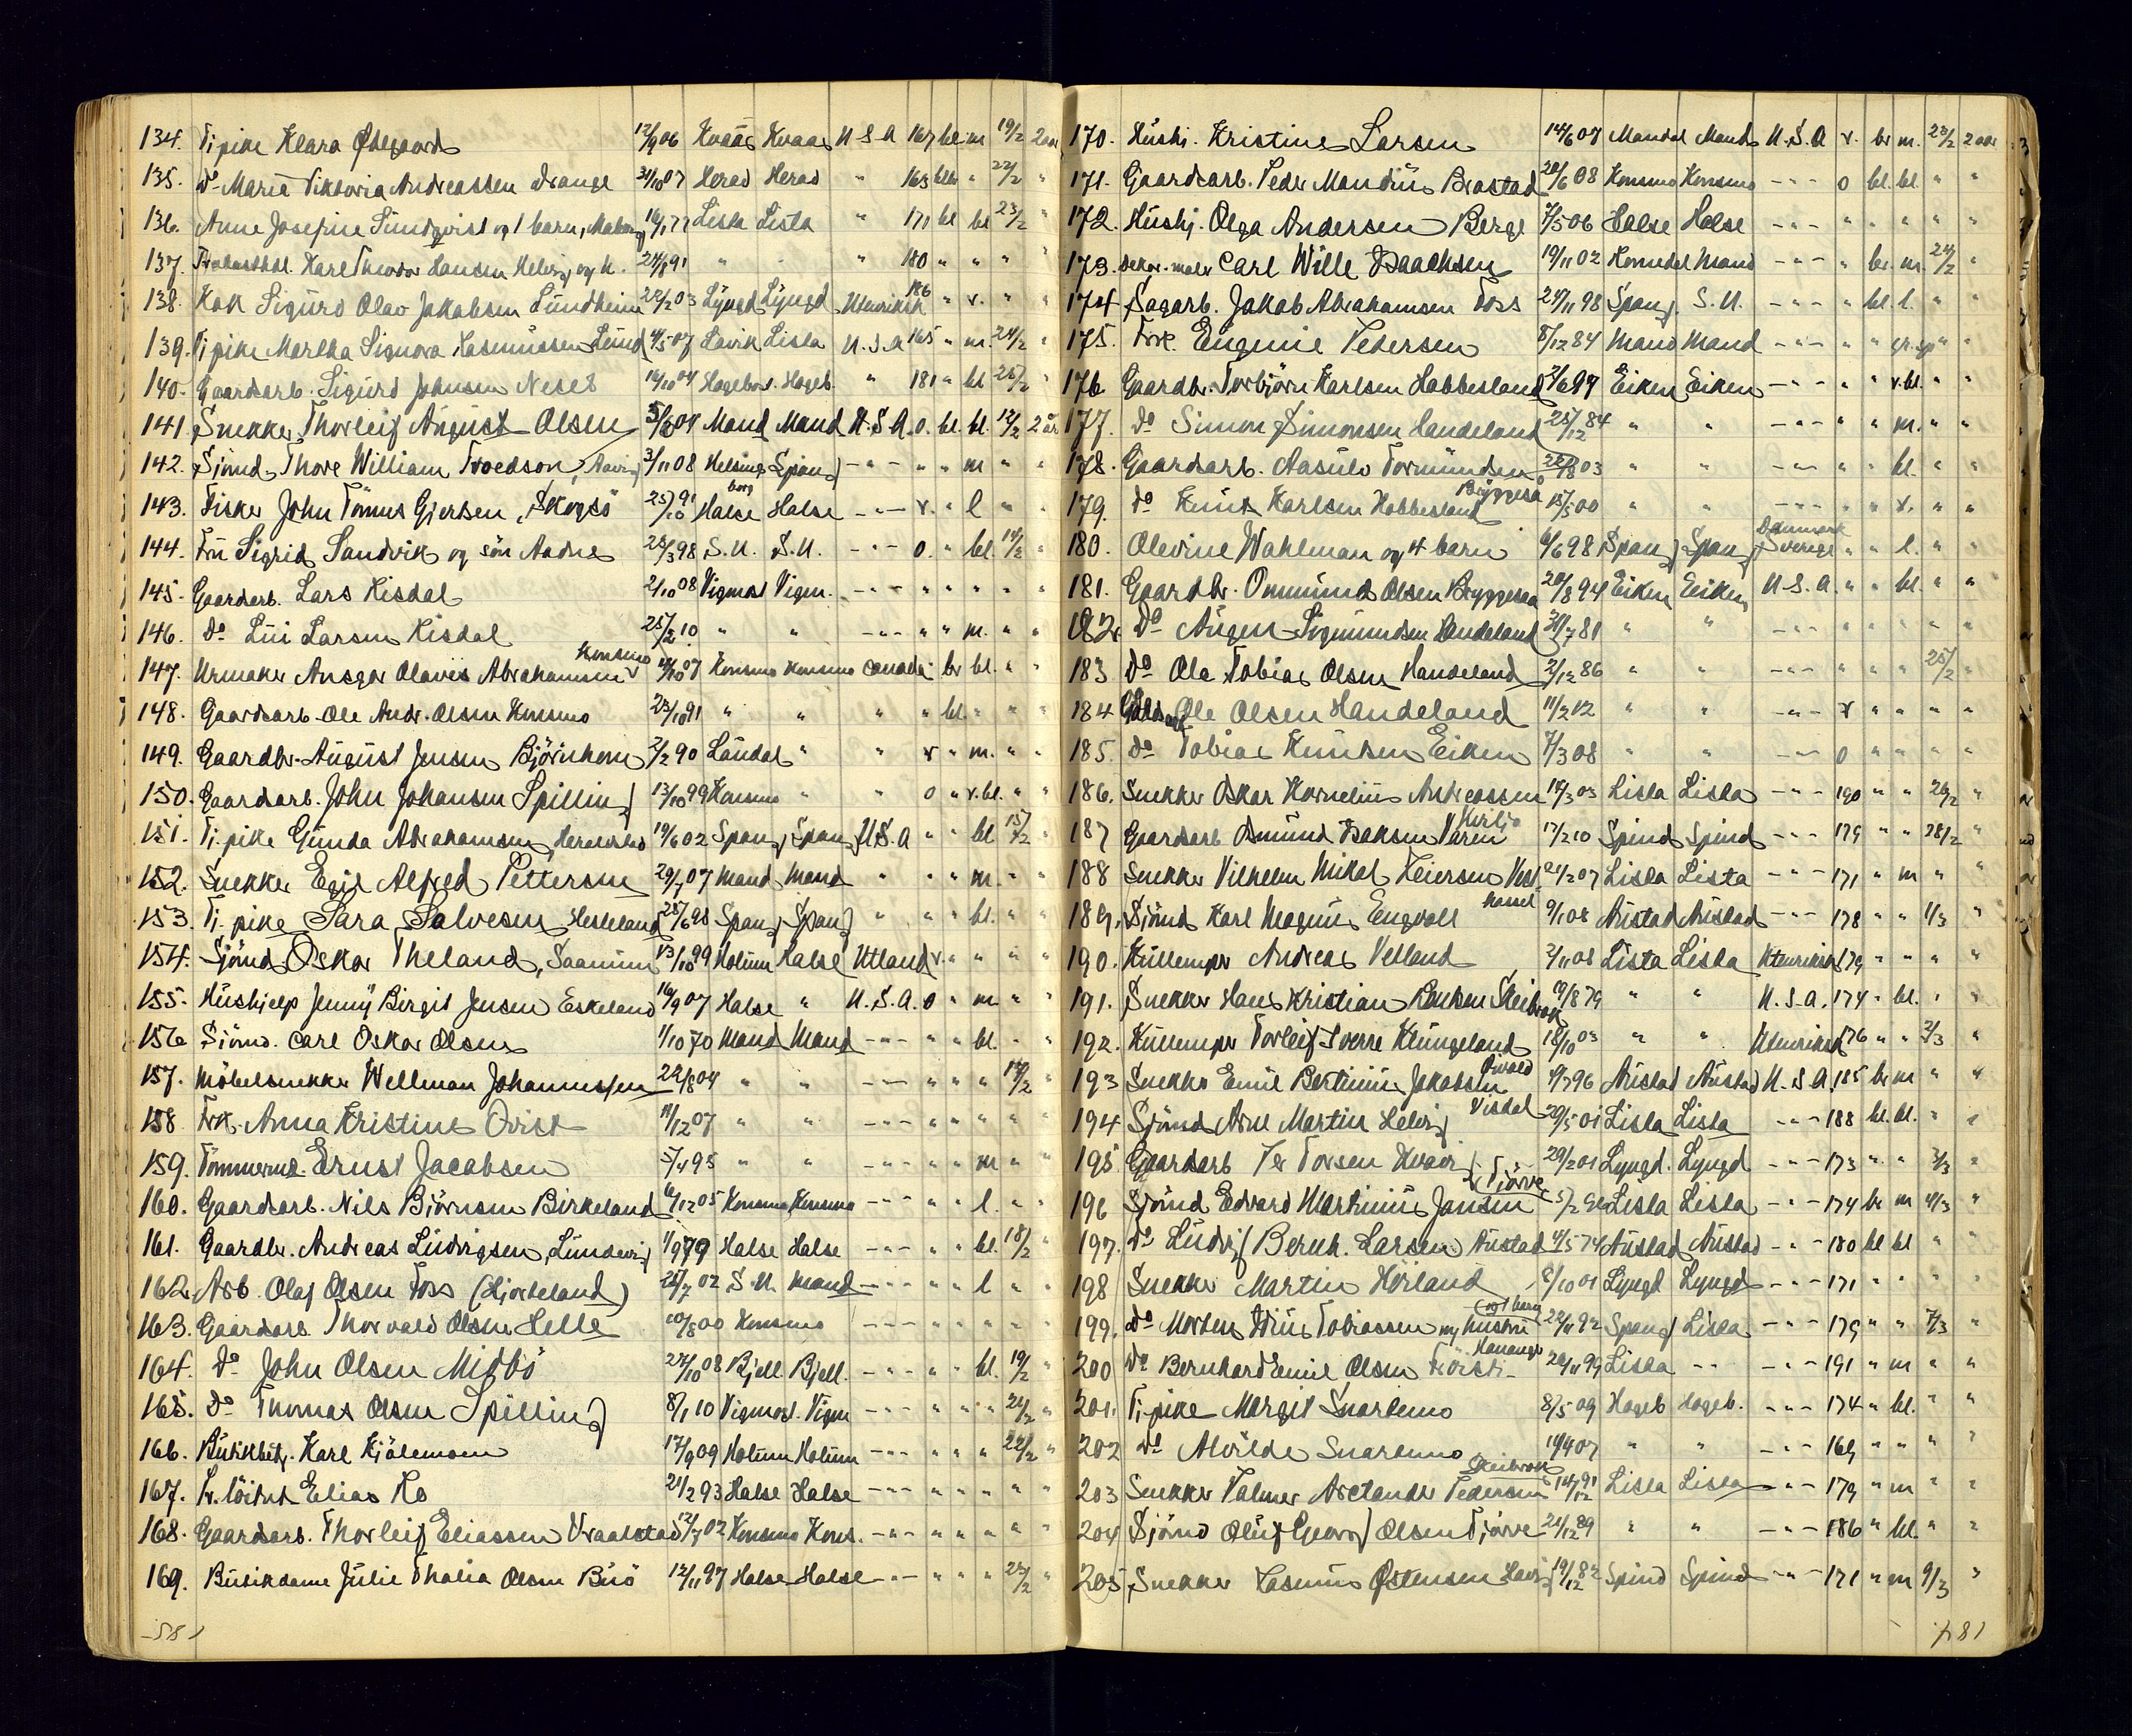 134. Tj.pike Klara Ødegaard 12/9 06 Kvaas Kvaas U S A 167 bl m 19/2 2 aar
135. do Maria Viktoria Andreassen Drange 31/10 07 Herad Herad " 163 " 22/2 "
136. Anne Josefine Sundqvist og 1 barn, 16/1 77 Lista Lista " 171 bl bl 23/2 "
137. Karl Theodor Hansen Helvig og h. 24/8 91 " " " 180 " " " "
138. Kok Sigurd Olav Jakobsen Lundheim 22/2 03 Lyngd Lyngd Utenriksk 186 " v. " "
139. Tj.pike Martha Signora Rasmussen Lund 4/5 07 Lavik Lista U.S.A 165 " m. 24/2 "
140. Gaardarb. Sigurd Johnsen Neset 14/10 04 Hægebost. Hægeb. " 181 " bl 26/2 "
141. Snekker Thorleif August Olsen 5/8 04 Mand Mand U.S.A. o. bl. bl. 12/2 2 år
142. Sjömd. Thore William Troedson, 3/11 08 Helsingborg Spang - " - " " m " "
143. Fisker John Tönnes Gjertsen, Skogsö 25/10 91 Halse Halse - " - v. " l " "
144. Fru Sigrid Sandvik og sön Aadne 28/3 98 S.U. S.U. - " - o. " bl. 14/2 "
145. Gaardarb. Lars Kisdal 2/10 08 Vigmost Vigm. - " - " " " " "
146. Do Lui Larsen Kisdal 25/2 10 " " - " - " " m. " "
147. Urmaker Ansgar Olavus Abrahamsen Konsmo 14/10 07 Konsmo Konsmo Canada " br bl. " "
148. Gaardarb. Ole Andr. Olsen Konsmo 23/10 91 " " " " bl. " " "
149. Gaardbr. August Jensen Björnhom 2/2 90 Laudal " " v " m. " "
150. Gaardarb. John Johansen Spilling 13/10 99 Konsmo " " o " v.bl. " "
151. Tj. pike Gunda Abrahamsen, Heraldstad 19/6 02 Spang Spang U.S.A " " bl 15/2 "
152. Snekker Egil Alfred Pettersen 29/7 07 Mand Mand " " " m. " "
153. Tj. pike Sara Salvesen Hesteland 25/6 98 Spang Spang " " " bl. " "
154. Sjömd. Oskar Theland, Saanum 13/10 99 Holum Halse Utland v. " " " "
155. Hushjelp Jenny Birgit Jensen Eskeland 16/9 07 Halse " U.S.A. o " m " "
156 Sjömd. Carl Oskar Olsen 1/10 70 Mand Mand - " - " " bl. " "
157. Möbelsnekker Wellman Johannessen 22/8 04 " " - " - " " " 17/2 "
158 Frk. Anna Kristine Qvist 11/12 07 " " - " - " " " " "
159. Tömmermd. Ernst Jacobsen 5/4 95 " " - " - " " m " "
160. Gaardarb. Nils Björnsen Birkeland 6/12 05 Konsmo Konsmo - " - " " l. " "
161. Gaardbr. Andreas Ludvigsen, Lundevig 1/9 79 Halse Halse - " - " " bl. 18/2 "
162. Arb. Olaf Olsen Foss (Hjorteland) 25/7 02 S.U. Mand - " - " " l " "
163. Gaardarb. Thorvald Olsen Helle 20/8 00 Konsmo - " - " " " " "
164. do John Olsen Midbö 27/10 08 Bjell. Bjell. - " - " " bl. 19/2 "
165. Do Thomas Olsen Spilling 8/1 10 Vigmost. Vigm - " - " " " 21/2 "
166. Butikbetj. Karl Kjölemoen 17/9 09 Holum Holum - " - " " " 22/2 "
167. Elias Ro 21/2 93 Halse Halse - " - " " " " "
168. Gaardarb. Thorleif Eliassen Vraalstad 12/7 02 Konsmo Kons. - " - " " " " "
169. Butikdame Julie Thalia Olsen Buö 12/11 97 Halse Halse - " - " " " 23/2 "
581
170. Hushj. Kristine Larsen 14/6 07 Mandal Mand U.S.A v. br m. 23/2 2 aar
171. Gaardarb. Peder Mandius Brastad 20/6 08 Konsmo Konsmo - " - o bl. bl. " "
172. Hushj. Olga Andersen Berge 7/5 06 Halse Halse - " - " " " " "
173. Dekor.maler Carl Wille Isaachsen 19/11 02 Mand - " - " br. m. 24/2 "
174 Sagarb. Jakob Abrahamsen Foss 24/11 98 Spang. S.U. - " - " bl. l. " "
175. Frk. Eugenie Pedersen 8/12 84 Mand Mand - " - " " gr.sp " "
176 Gaardbr. Torbjörn Karlsen Hobbesland 2/6 97 Eiken Eiken - " - " " v.bl. " "
177. do Simon Simonsen Handeland 25/12 84 " " - " - " " m. " "
178. Gaardarb. Aasulv Tormundsen Byggesaa 22/8 03 " " - " - " " bl. " "
179. do Knut Karlsen Hobbesland 15/5 00 " " - " - " " v. " "
180. Olevine Wahlman og 4 barn 6/6 98 Spang Spang Danmark Sverige " " l. " "
181. Gaardbr. Ommund Olsen Byggesaa 20/8 94 Eiken Eiken U.S.A. " " bl. " "
182. Do Augen Sigmundsen Handeland 30/7 81 " " - " - " " " " "
183 Do Ole Tobias Olsen Handeland 2/12 86 " " - " - " " " 25/2 "
184 Ole Olsen Handeland 11/2 12 " " - " - v " " " "
185. do Tobias Knutsen Eiken 7/3 08 " " - " - o " " " "
186. Snekker Oskar Kornelius Andreassen 18/3 03 Lista Lista - " - 190 " " 26/2 "
187 Gaardarb Osmund Isaksen Varen 17/2 10 Spind Spind - " - 179 " " 28/2 "
188 Snekker Vilhelm Mikal Reiersen Vest 24/2 07 Lista Lista - " - 171 " m " "
189. Sjömd Karl Magnus Engvall 9/1 08 Austad Austad - " - 178 " " 1/3 "
190. Kullemper Andreas Velland 2/11 08 Lista Lista Utenriksk 179 " " " "
191. Snekker Hans Kristian Skeibrok 19/8 79 " " U.S.A. 174 " bl. " "
192. Kullemper Torleif Sverre Klungeland 18/10 03 " " Utenriksk 176 " " 2/3 "
193 Snekker Emil Bertinius Jakobsen 4/7 96 Austad Austad U.S.A. 185 br m " "
194 Sjömd Arne Martin Helvig Visdal 20/5 01 Lista Lista - " - 188 bl. bl. " "
195 Gaardarb Per Torsen Kvavi 29/2 01 Lyngd. Lyngd - " - 173 " " 3/3 "
196 Sjömd Edvard Martinius Jansen Tjörve 5/2 Lista Lista - " - 174 br m 4/3 "
197. do Ludvig Bernh. Larsen Austad 4/5 74 Austad Austad - " - 180 bl bl " "
198 Snekker Martin Hörland 8/10 01 Lyngd Lyngd - " - 171 " " " "
199. do Morten Tobiassen m/ hustru (og 1 barn 22/11 92 Spang Lista - " - 179 " " 7/3 "
200 do Bernhard Emil Olsen Hanange 20/11 99 Lista - " - - " - 191 " m " "
201. Tj.pike Margit Snartemo 8/5 09 Hægeb Hægeb. - " - 174 " bl. " "
202 do Alvilde Snartemo 14/4 07 " " - " - 169 " " " "
203 Snekker Valmer Arctander Pedersen Skeibrok 14/12 91 Lista Lista - " - 179 " m " "
204 Sjömd Oluf Georg Olsen Tjörve 21/12 89 " " - " - 186 " bl. " "
205 Snekker Rasmus Östensen 19/12 82 Spind Spind - " - 171 " m 9/3 "